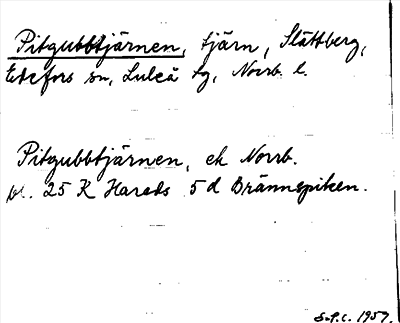 Pitgubbtjärnen, tjärn, Slättberg,
Edefors sn, Luleå tg, Norrb. l.
Pitgubbtjärnen, ek Norrb.
bl. 25 K Harads 5 d Brännspiken.
S.P.C. 1957.